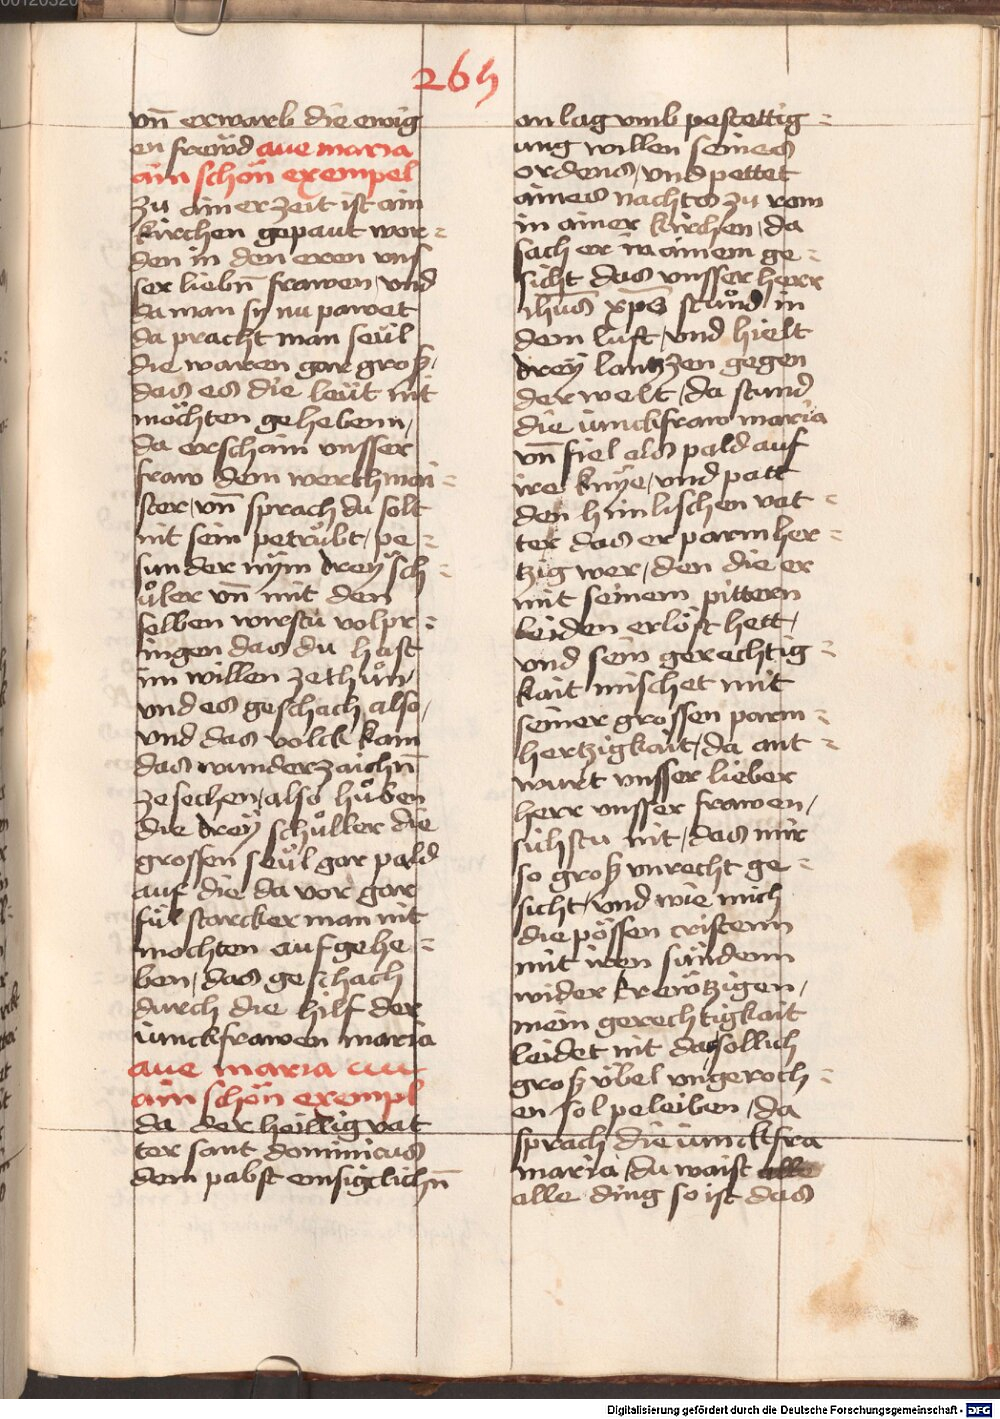 265
vn̄ erwarb die ewig
en frewd aue maria
ain schön exempel
zu ainer zeit ist ain
kirchen gepaut wor=
den in den eren vns
ser liebn̄ frawen / vnd
da man sy nu pawet
da pracht man seül
die waren gar groß /
das es die leüt nit
möchten geheben /
da erschain vnsser
fraw dem werchmai=
ster / vn̄ sprach du solt
nit sein petrübt / pe=
sunder nÿm dreÿ sch=
ůler vn̄ mit den
selben wirstu volpr=
ingen das du hast
im willen zethůn /
vnd es geschach also /
vnd das volck kam
das wunderzaichn̄
zesechen / also hůben
die dreÿ schůller die
grossen seül gar pald
auf die da vor gar
fil starcker man nit
mochten aufgehe=
ben / das geschach
durch die hilf der
iunckfrawen maria
aue maria
ain schön exempl
da der heillig vat
ter sant dominicus
dem pabst emsigclichn̄
an lag vmb pestettig=
ung willen seines
ordens / vnd pettet
aines nachts zu rom
in ainer kirchen / da
sach er in ainem ge=
sicht das vnsser herr
ihūs xp̄s stůnd in
dem luft / vnd hielt
dreÿ lantzen gegen
der welt / da stund
die iunckfraw maria
vn̄ fiel als pald auf
ire knÿe / vnd patt
den himlischen vat=
ter das er parmher=
tzig wer / den die er
mit seinem pittern
leiden erlöst hett /
vnd sein gerechtig=
kait mischet mit
seiner grossen parm=
hertzigkait / da ant=
wurt vnsser lieber
herr vnsser frawen /
sichstu nit / das mir
so groß vnrecht ge=
sicht / vnd wie mich
die pössen cristenn
mit iren sündenn
wider krewtzigen /
mein gerechtigkait
leidet nit das sollich
groß vbel vngeroch=
en sol peleiben / da
sprach die iunckfra
maria / du waist
alle ding so ist das
Digitalisierung gefördert durch die Deutsche Forschungsgemeinschaft - DFG